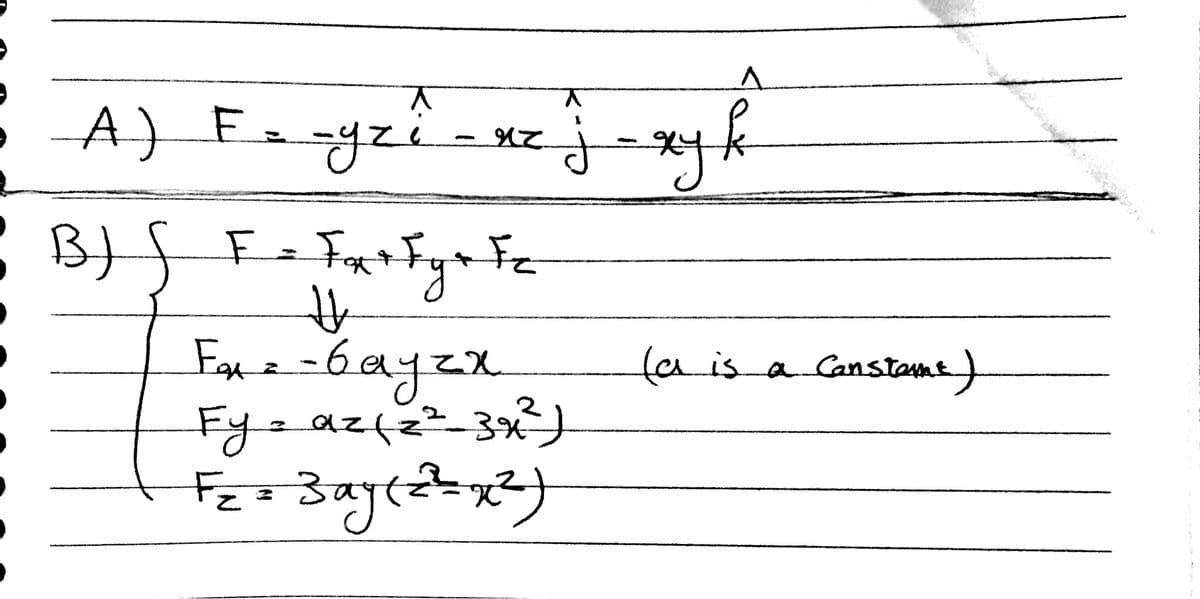 A) F = -yzî - xz ĵ - xy k̂
B) { F = Fx + Fy + Fz
⇓
Fx = -6ayzx (a is a Constant)
Fy = az(z²-3x²)
Fz = 3ay(z²-x²)